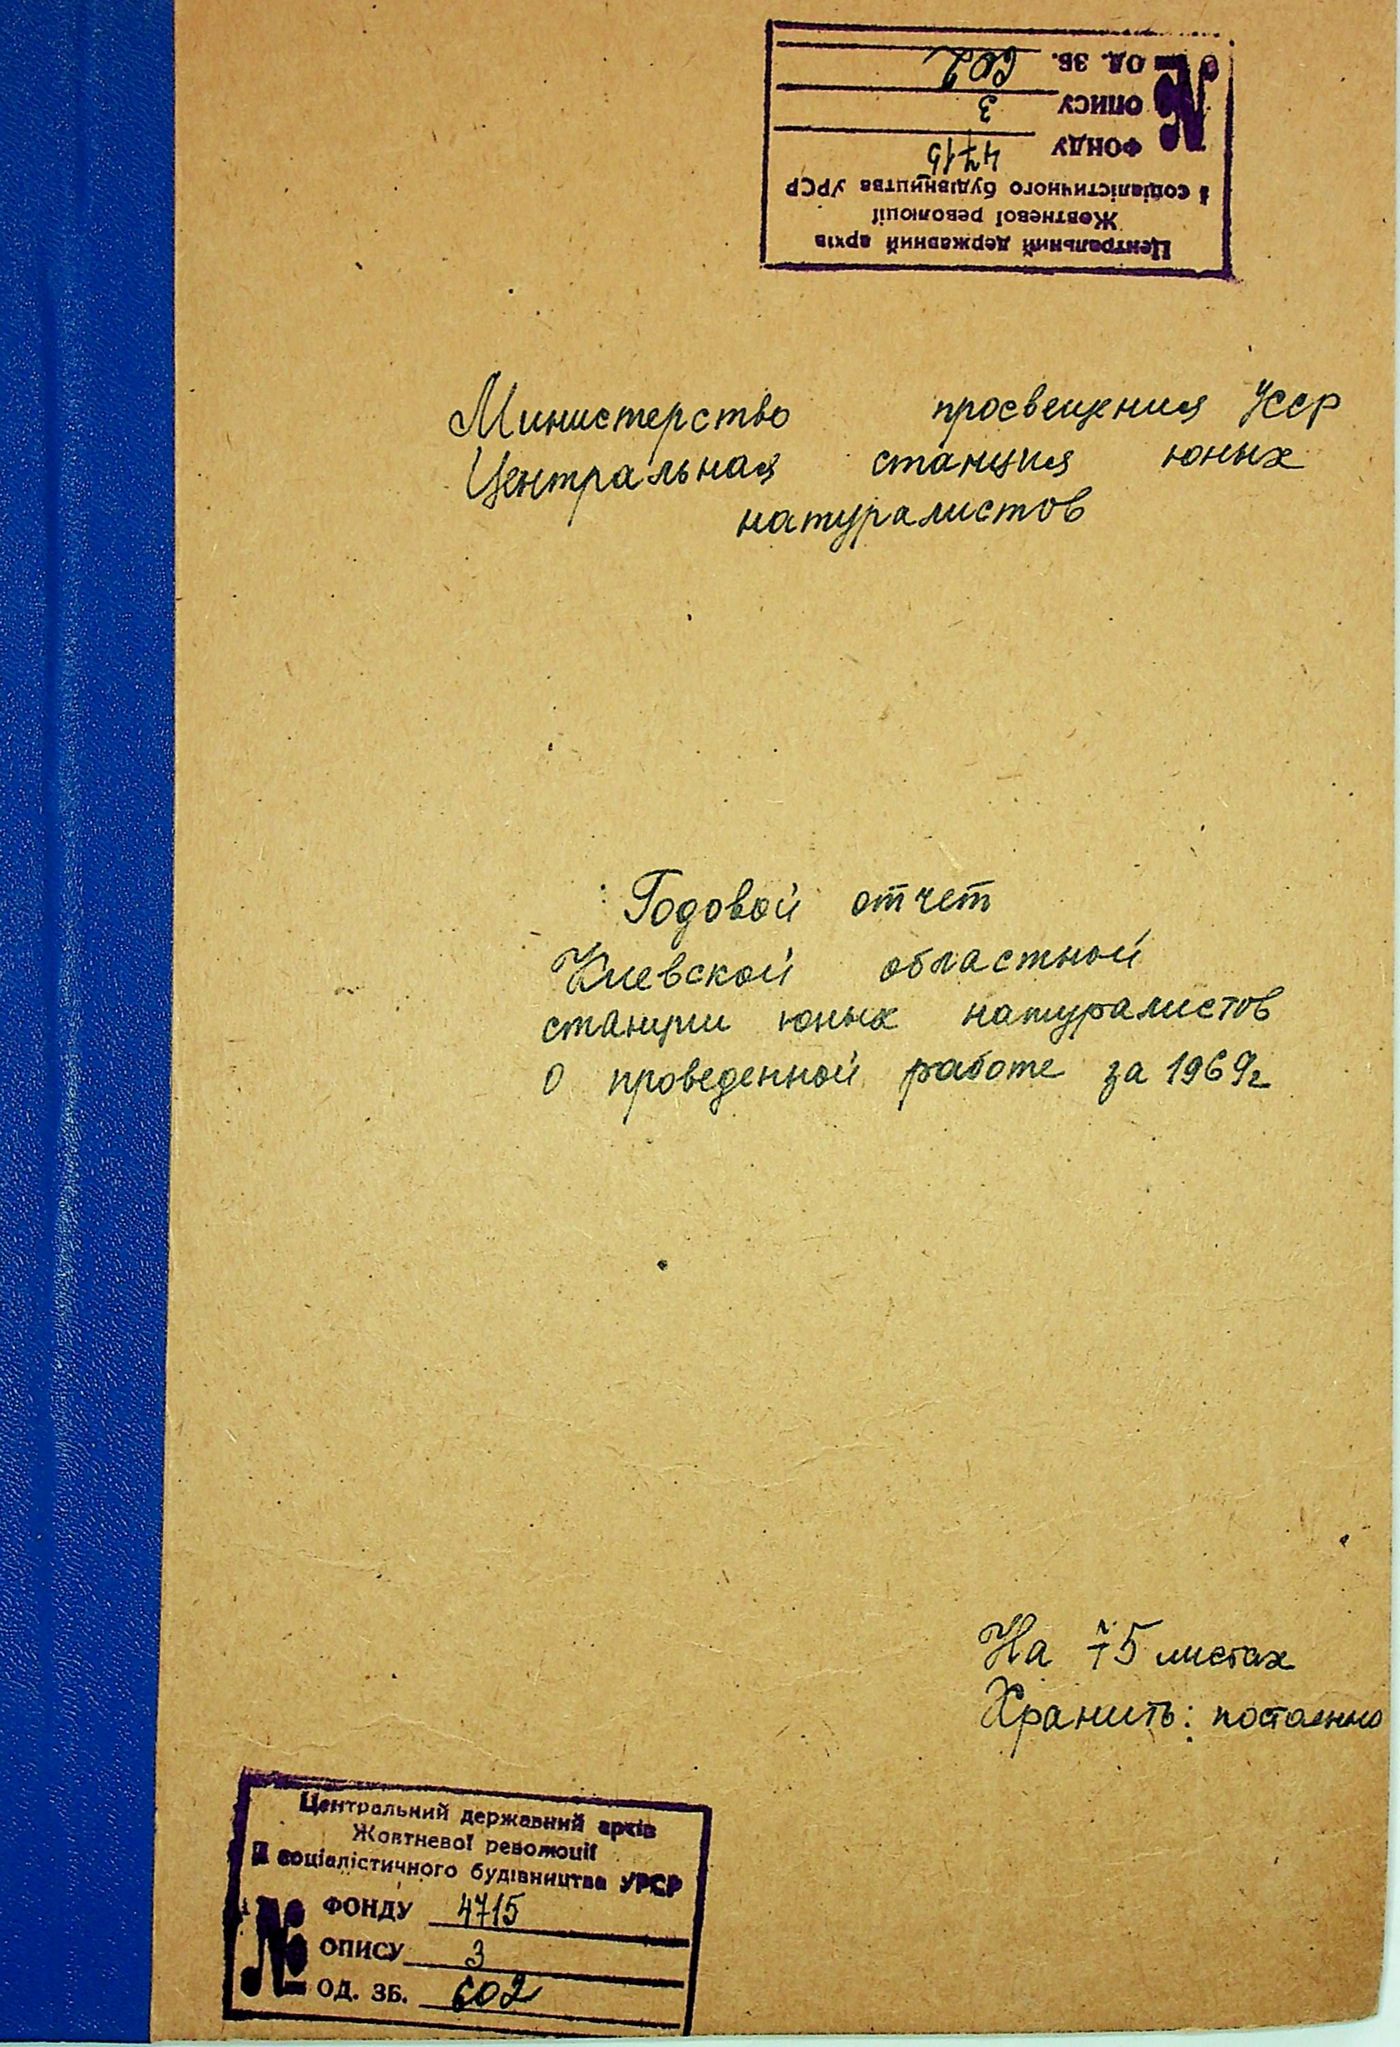 Центральний державний архів
Жовтневої революції
і соціалістичного будівництва УРСР
№
ФОНДУ 4715
ОПИСУ 3
ОД. ЗБ. 602
Министерство просвещения УССР
Центральная станция юных
натуралистов
Годовой отчет
Киевской областной
станции юных натуралистов
о проведенной работе за 1969г
На 75 листах
Хранить: постоянно
Центральний державний архів
Жовтневої революції
і соціалістичного будівництва УРСР
№
ФОНДУ 4715
ОПИСУ 3
ОД. ЗБ. 602